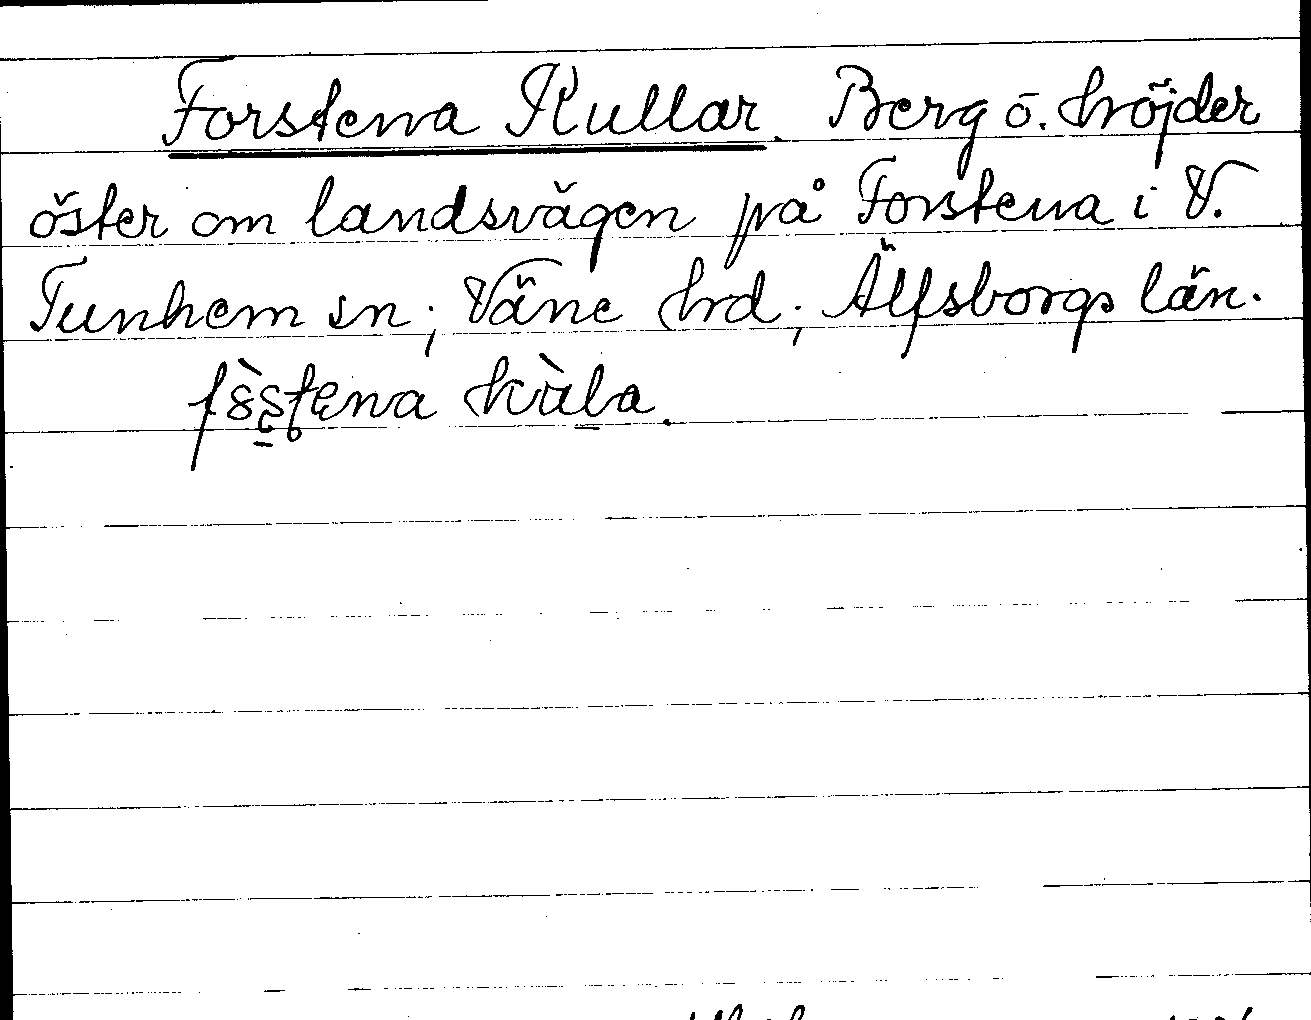 Forstena Kullar. Berg o. höjder
öster om landsvägen på Forstena i V.
Tunhem sn; Väne hrd; Älfsborgs län.